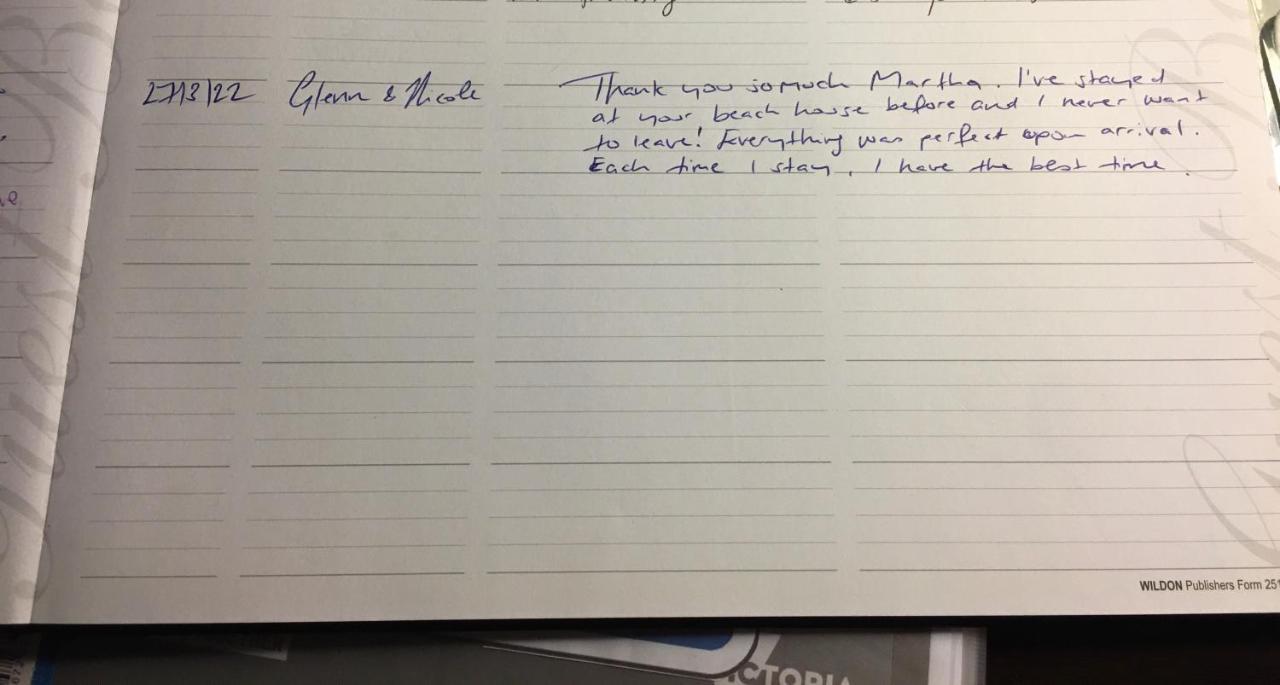 27/3/22 Glenn & Nicole Thank you so much Martha. I've stayed
at your beach house before and I never want
to leave! Everything was perfect upon arrival.
Each time I stay, I have the best time.
WILDON Publishers Form 251